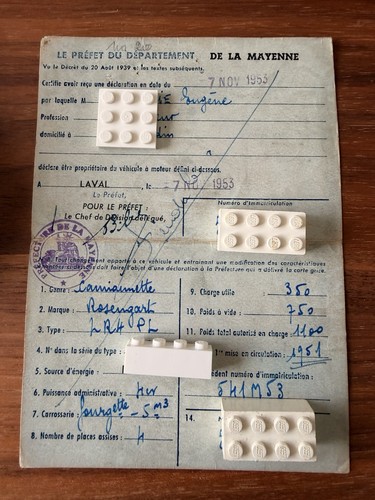 LE PRÉFET DU DÉPARTEMENT DE LA MAYENNE
Vu le Décret du 20 Août 1939 et les textes subséquents,
Certifie avoir reçu une déclaration en date du 7 NOV 1953
par laquelle M Eugène
Profession
domicilié à
déclare être propriétaire du véhicule à moteur défini ci-dessous.
A LAVAL, le 7 NOV 1953
Le Préfet,
Numéro d'Immatriculation
POUR LE PRÉFET :
Le Chef de Division délégué,
PRÉFECTURE DE LA MAYENNE
Tout changement apporté à ce véhicule et entraînant une modification des caractéristiques
doit faire objet d'une déclaration à la Préfecture qui a délivré la carte grise.
1. Genre : Camionnette
2. Marque : Rosengart
3. Type :
4. N° dans la série du type :
5. Source d'énergie :
6. Puissance administrative :
7. Carrosserie : fourgette - 5 m3
8. Nombre de places assises : 4
9. Charge utile : 350
10. Poids à vide : 750
11. Poids total autorisé en charge : 1100
1re mise en circulation : 1951
dent numéro d'immatriculation :
541M53
14.